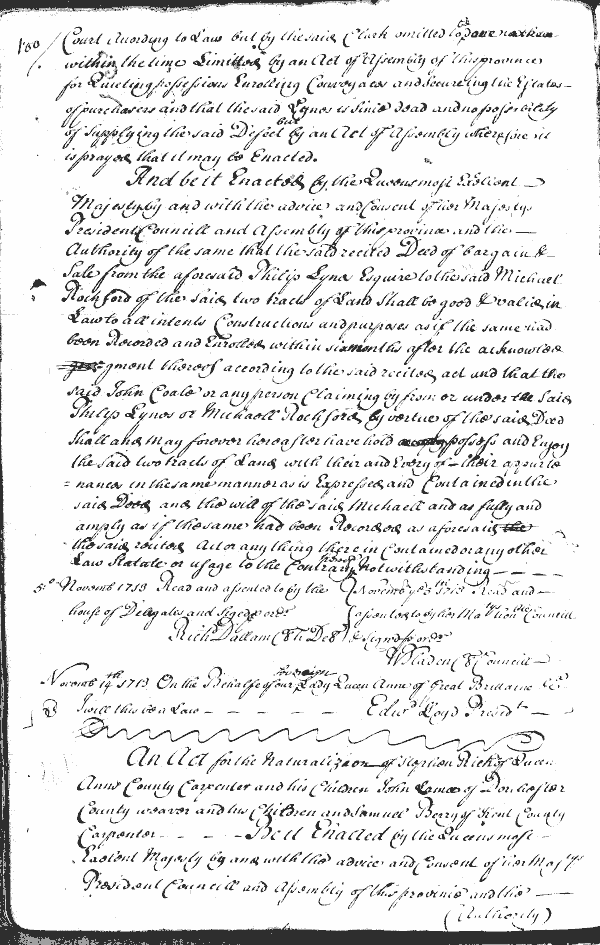 180
Court According to Law but by the said Clark omitted to be done
within the time Limitted by an Act of Assembly of this province
for Quieting possessions Enrolling Conveyances and Secureing the Estates
of purchasers and that the said Lynes is Since dead and no possibility
of Supplying the said Defect but by an Act of Assembly wherefore it
is prayed that it may be Enacted.
And be it Enacted by the Queens most Excellent
Majesty by and with the advice and Consent of her Majestys
President Councill and Assembly of this province and the
Authority of the same that the said recited Deed of bargain &
Sale from the aforesaid Philip Lynes Esquire to the said Michaell
Rochford of the Said two tracts of Land Shall be good & valid in
Law to all intents Constructions and purposes as if the same had
been Recorded and Enrolled within six months after the acknowled
gment thereof according to the said recited act and that the
said John Coale or any person Claiming by from or under the Said
Philip Lynes or Michaell Rochford by vertue of the said Deed
shall and may forever hereafter have hold possess and Enjoy
the said two tracts of Land with their and Every of their appurte
=nances in the same manner as is Expressed and Contained in the
said Deed and the will of the said Michaell and as fully and
amply as if the same had been Recorded as aforesaid the
the said recited Act or any thing therein Contained or any other
Law Statute or usage to the Contrary Notwithstanding
5o Novemb 1713 Read and assented to by the
house of Delegates and Signed p ordr
Richd Dallam Cl h Del
Novemb ye 5th 1713 Read and
assented to by her Matys honble Councill
& Signd p ordr
W Bladen Cl Councill
Novemb 14th 1713 On the Behalfe of our Sovereign Lady Queen Anne of Great Brittaine &c
I will this be a Law
Edwd Lloyd Presidt
An Act for the Naturalizaon of Stephen Rich of Queen
Anns County Carpenter and his Children John of Dorchester
County weaver and his Children and Samuel Berry of Kent County
Carpenter Be it Enacted by the Queens most
Excelent Majesty by and with the advice and Consent of her Majtys
President Councill and Assembly of this province and the
(Authority)